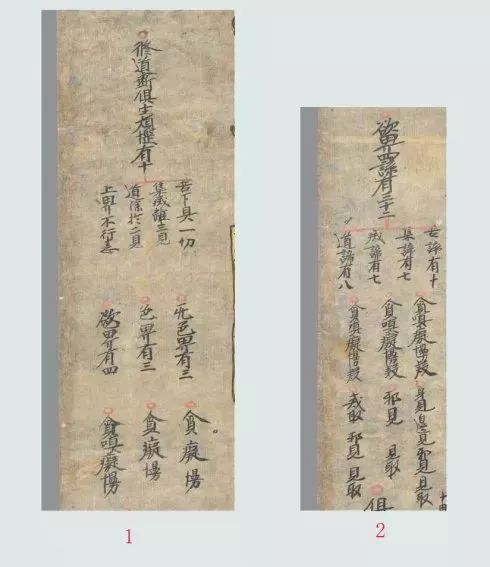 修道斷俱生煩惱有十
苦下具一切
集滅離三見
道除於二見
上界不行恚
无色界有三
色界有三
欲界有四
貪癡慢
貪癡慢
貪嗔癡慢
1
欲界四諦有三十二
苦諦有十
集諦有七
滅諦有七
道諦有八
貪嗔癡慢疑 身邊見邪見見取
貪嗔癡慢疑 邪見 見取
貪嗔癡慢疑 戒取 邪見 見取
俱
2